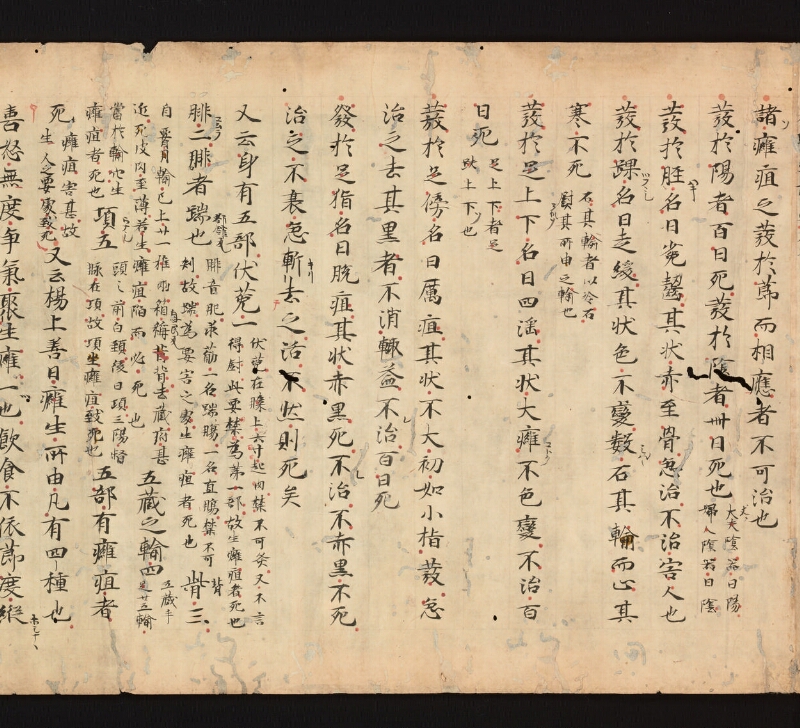 諸癰疽之發於節而相應者不可治也
發於陽者百日死發於陰者卌日死也 丈夫陰器曰陽 婦人陰器曰陰
發於脛名曰菟齧其狀赤至骨急治不治害人也
發於踝名曰走緩其狀色不變數石其輸而心其
寒不死 石其輸者以冷石 熨其所由之輸也
發於足上下名曰四淫其狀大癰不色變不治百
日死 足上下者足 趺上下也
發於足傍名曰厲疽其狀不大初如小指發急
治之去其黑者不消輙益不治百日死
發於足指名曰脫疽其狀赤黑死不治不赤黑不死
治之不衰急斬去之活不然則死矣
又云身有五部伏菟一 伏菟在膝上六寸起肉禁不可灸又不言 得尉此要禁為第一部故生癰疽者死也
腓二腓者踹也 腓音肥 一名踹腸一名直腸禁不可 刺故踹為要害之處生癰疽者死也 背三
自 輸已上廿一椎兩箱 背去藏府甚 近死皮肉至薄若生癰疽陷而必死也 五藏之輸四 五藏手 足廿五輸
當於輸穴生 癰疽者死也 項五 頭之前曰頸後曰項三陽督 脉在項故項生癰疽致死也 五部有癰疽者
死 癰疽害甚故 生人之要處致死 又云楊上善曰癰生所由凡有四種也
喜怒無度爭氣聚生癰一也飲食不依節度縱